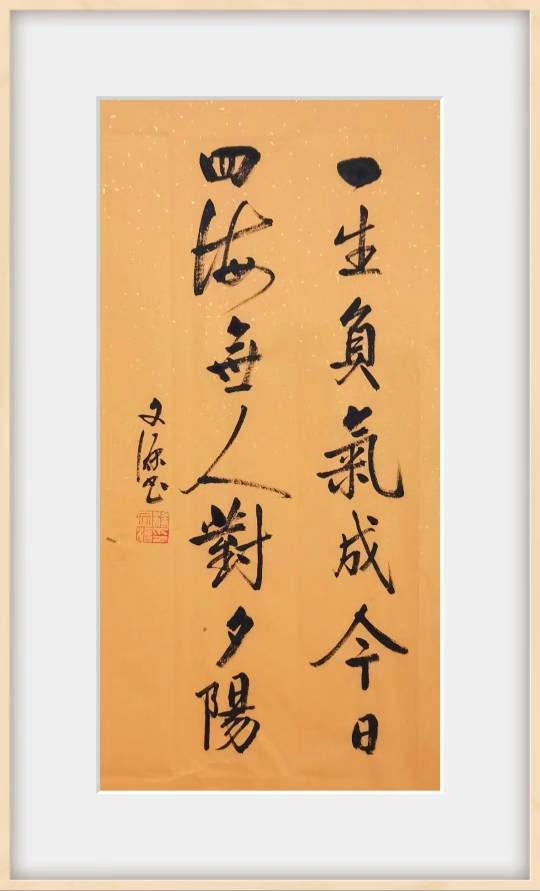 一生負氣成今日
四海無人對夕陽
文源书